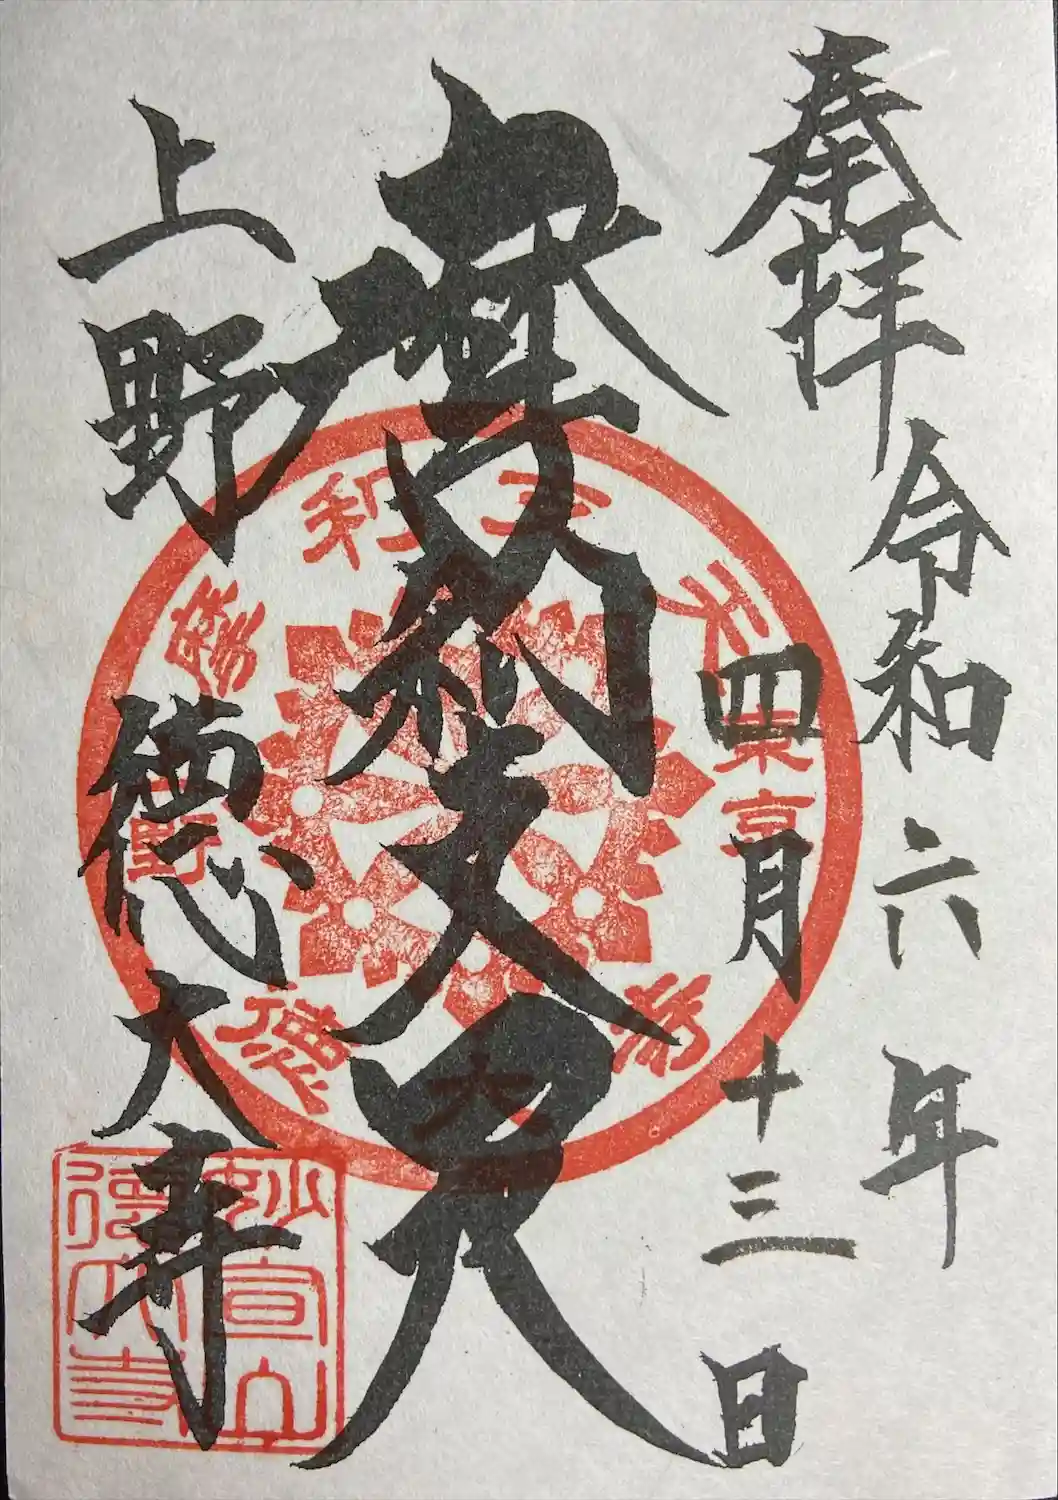 奉拝
令和六年
四月十三日
摩利支天
上野
徳大寺
摩利支天
東京
上野
徳大寺
妙宣山
徳大寺